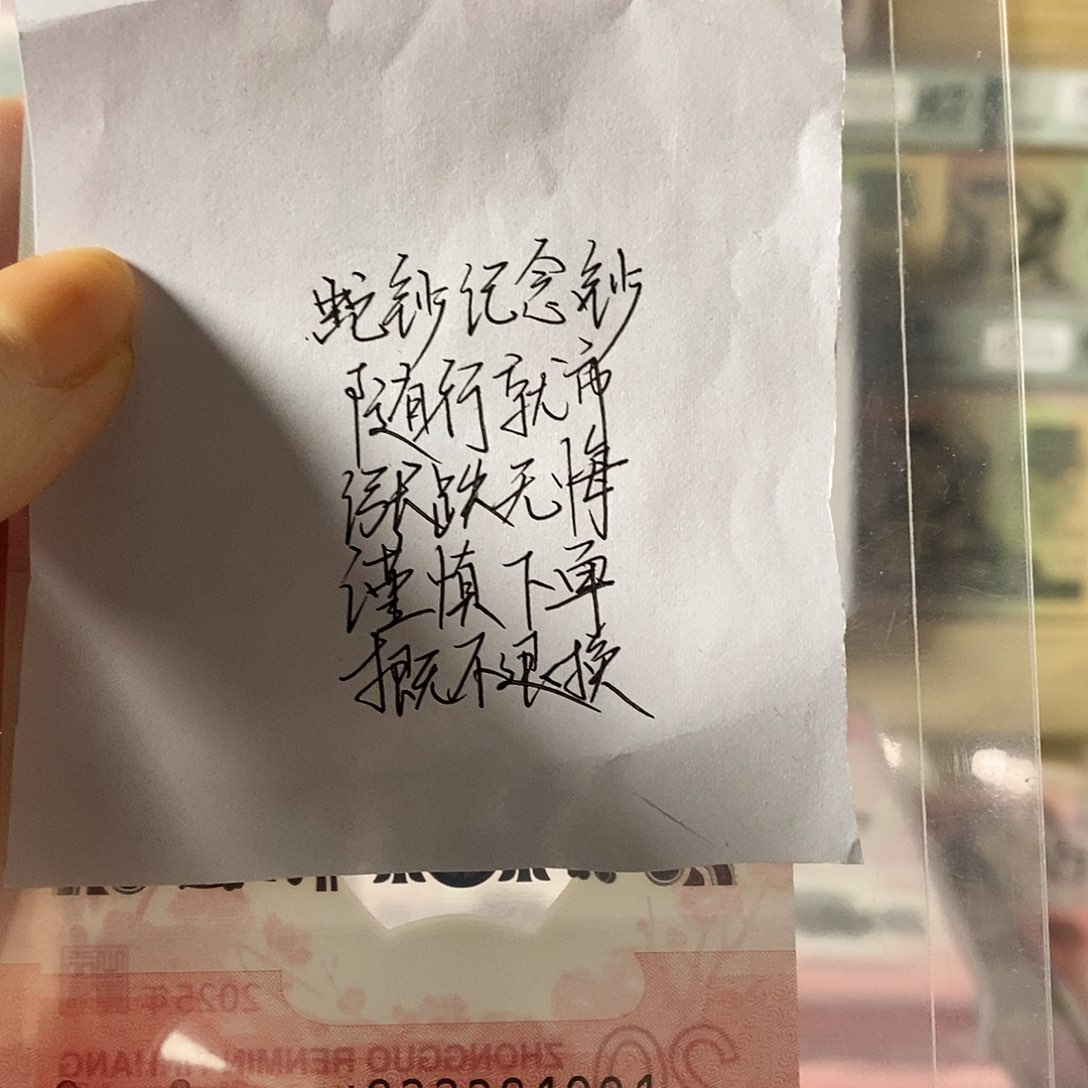 蛇钞纪念钞
随行就市
涨跌无悔
谨慎下单
概不退换
2025年
ZHONGGUO RENMIN
20